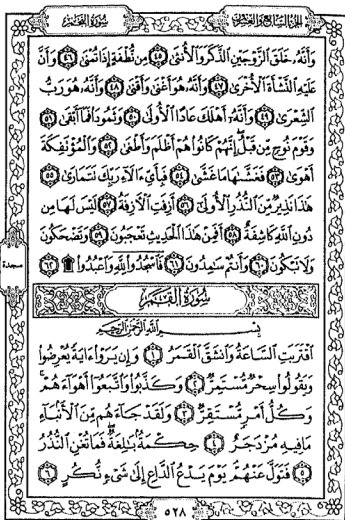 الجزء السابع والعشرون
سورة القمر
وَأَنَّهُۥ خَلَقَ ٱلزَّوْجَيْنِ ٱلذَّكَرَ وَٱلْأُنثَىٰ ٤٥ مِن نُّطْفَةٍ إِذَا تُمْنَىٰ ٤٦ وَأَنَّ
عَلَيْهِ ٱلنَّشْأَةَ ٱلْأُخْرَىٰ ٤٧ وَأَنَّهُۥ هُوَ أَغْنَىٰ وَأَقْنَىٰ ٤٨ وَأَنَّهُۥ هُوَ رَبُّ
ٱلشِّعْرَىٰ ٤٩ وَأَنَّهُۥٓ أَهْلَكَ عَادًا ٱلْأُولَىٰ ٥٠ وَثَمُودَا۟ فَمَآ أَبْقَىٰ ٥١
وَقَوْمَ نُوحٍ مِّن قَبْلُ إِنَّهُمْ كَانُوا۟ هُمْ أَظْلَمَ وَأَطْغَىٰ ٥٢ وَٱلْمُؤْتَفِكَةَ
أَهْوَىٰ ٥٣ فَغَشَّىٰهَا مَا غَشَّىٰ ٥٤ فَبِأَىِّ ءَالَآءِ رَبِّكَ تَتَمَارَىٰ ٥٥
هَٰذَا نَذِيرٌ مِّنَ ٱلنُّذُرِ ٱلْأُولَىٰٓ ٥٦ أَزِفَتِ ٱلْءَازِفَةُ ٥٧ لَيْسَ لَهَا مِن
دُونِ ٱللَّهِ كَاشِفَةٌ ٥٨ أَفَمِنْ هَٰذَا ٱلْحَدِيثِ تَعْجَبُونَ ٥٩ وَتَضْحَكُونَ
وَلَا تَبْكُونَ ٦٠ وَأَنتُمْ سَٰمِدُونَ ٦١ فَٱسْجُدُوا۟ لِلَّهِ وَٱعْبُدُوا۟ ۩ ٦٢
سجدة
سُورَةُ القَمَر
بِسْمِ ٱللَّهِ ٱلرَّحْمَٰنِ ٱلرَّحِيمِ
ٱقْتَرَبَتِ ٱلسَّاعَةُ وَٱنشَقَّ ٱلْقَمَرُ ١ وَإِن يَرَوْا۟ ءَايَةً يُعْرِضُوا۟
وَيَقُولُوا۟ سِحْرٌ مُّسْتَمِرٌّ ٢ وَكَذَّبُوا۟ وَٱتَّبَعُوٓا۟ أَهْوَآءَهُمْ
وَكُلُّ أَمْرٍ مُّسْتَقِرٌّ ٣ وَلَقَدْ جَآءَهُم مِّنَ ٱلْأَنۢبَآءِ
مَا فِيهِ مُزْدَجَرٌ ٤ حِكْمَةٌۢ بَٰلِغَةٌ فَمَا تُغْنِ ٱلنُّذُرُ
٥ فَتَوَلَّ عَنْهُمْ يَوْمَ يَدْعُ ٱلدَّاعِ إِلَىٰ شَىْءٍ نُّكُرٍ ٦
٥٢٨